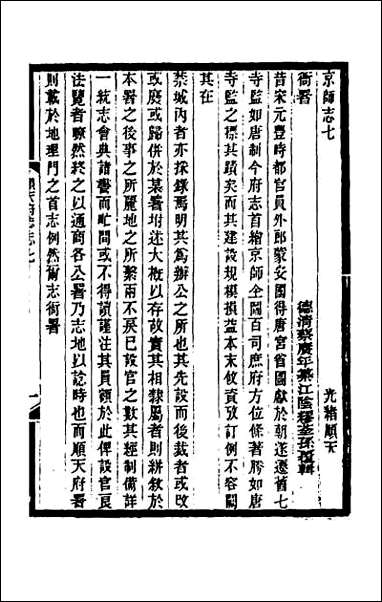 京師志七
光緒順天
衙署
德清蔡賡年纂江陰繆荃孫復輯
昔宋元豐時都官員外郎蒙安國得唐宮省圖獻於朝遂遷舊七
寺監如唐制今府志首繪京師全圖百司庶府方位條著勝如唐
寺監之標其蹟矣而其建設規模損益本末攸資攷訂例不容闕
其在
禁城內者亦採錄焉明其為辦公之所也其先設而後裁者或改
或廢或歸併於某署坿述大概以存故實其相隸屬者則緕敘於
本署之後事之所麗地之所繫兩不戾已設官之數其經制備詳
一統志會典諸書而時間或不得讀謹注其員額於此俾設官良
法覽者瞭然終之以通商各公署乃志地以誌時也而順天府署
則載於地理門之首志例然衙志衙署